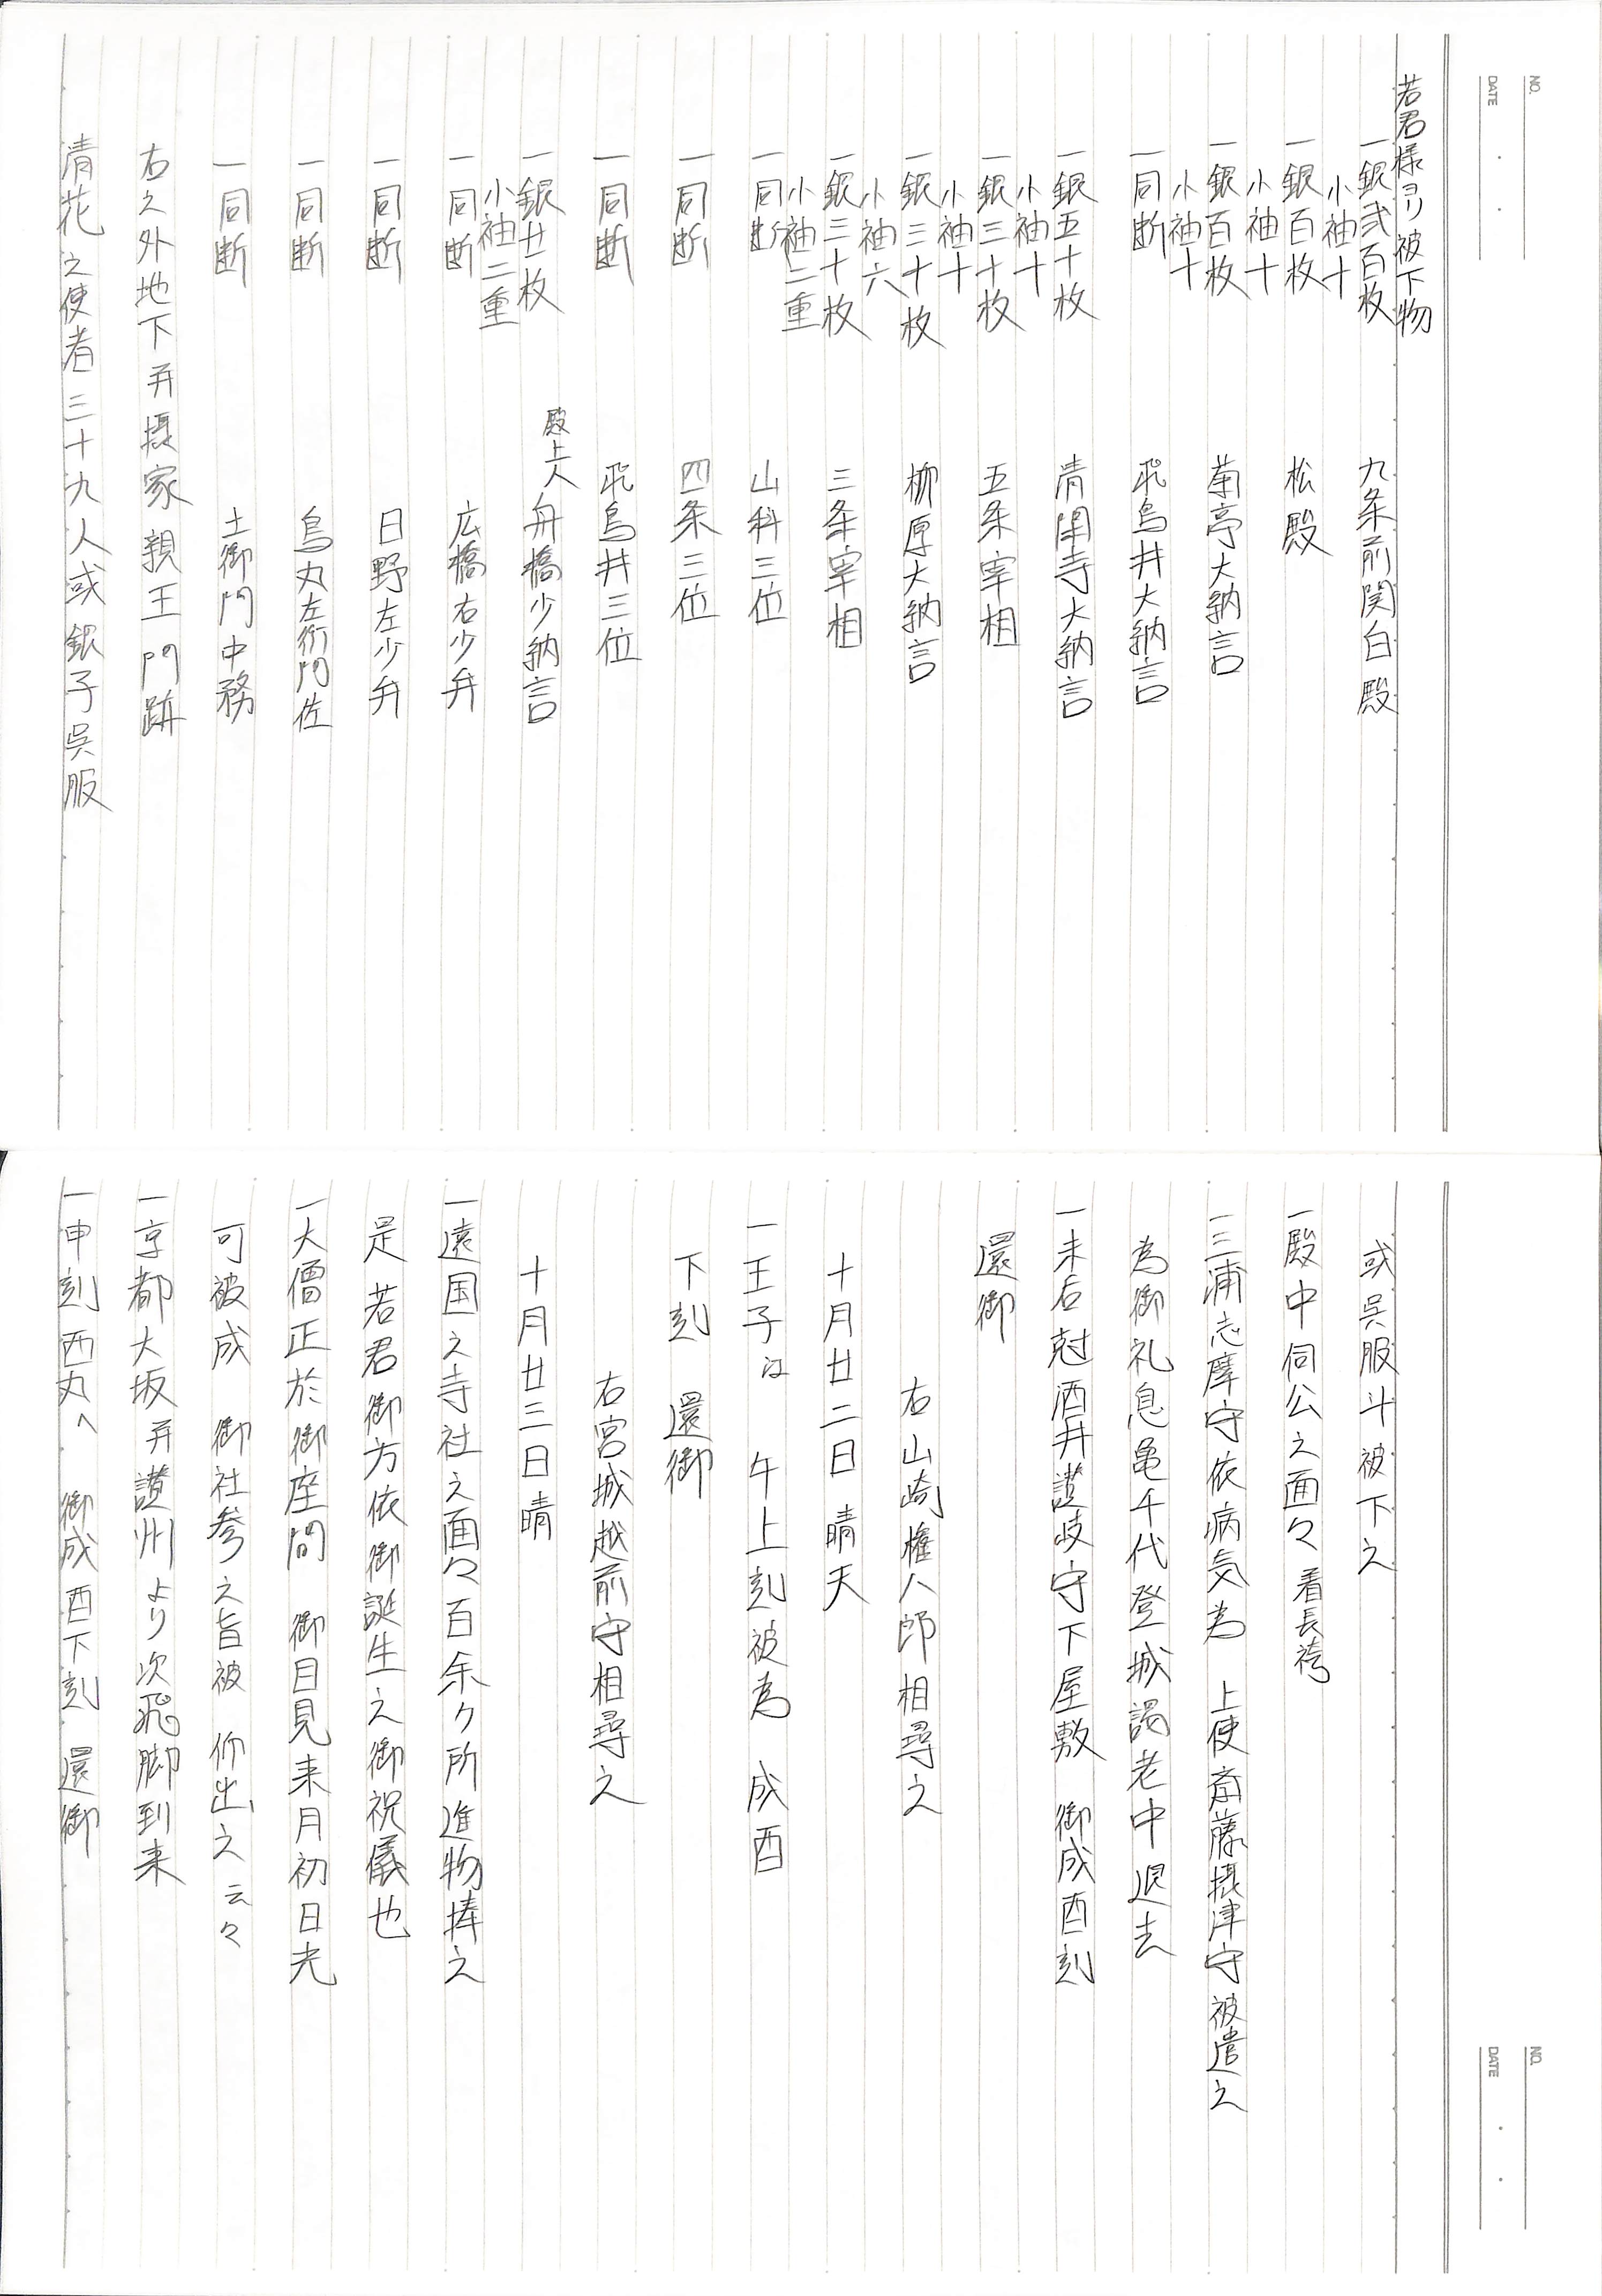 NO.
DATE
若君様ヨリ被下物
一銀弐百枚 九条前関白殿
小袖十
一銀百枚 松殿
小袖十
一銀百枚 菊亭大納言
小袖十
一同断 飛鳥井大納言
一銀五十枚 清閑寺大納言
小袖十
一銀三十枚 五条宰相
小袖十
一銀三十枚 柳原大納言
小袖六
一銀三十枚 三条宰相
小袖二重
一同断 山科三位
一同断 四条三位
一同断 飛鳥井三位
一銀廿枚 殿上人 舟橋少納言
小袖二重
一同断 広橋右少弁
一同断 日野左少弁
一同断 烏丸左衛門佐
一同断 土御門中務
右之外地下并摂家親王門跡
清花之使者三十九人或銀子呉服
NO.
DATE
或呉服斗被下之
一殿中伺公之面々着長袴
一三浦志摩守依病気為 上使斎藤摂津守被遣之
為御礼息亀千代登城謁老中退去
一未后尅酒井讃岐守下屋敷 御成酉刻
還御
右山崎権八郎相尋之
十月廿二日晴天
一王子は 午上刻被為 成酉
下刻 還御
右宮城越前守相尋之
十月廿三日晴
一遠国之寺社之面々百余ケ所進物捧之
是 若君御方依御誕生之御祝儀也
一大僧正於御座間 御目見来月初日光
可被成 御社参之旨被 仰出之云々
一京都大坂并讃州より次飛脚到来
一申刻西丸へ 御成酉下刻 還御